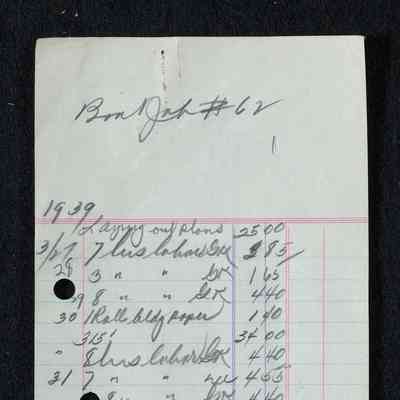 Job #62
1939
Laying out plans 25 00
3/27 7 hrs labor 3 85
28 3 " " 1 65
29 8 " " 4 40
30 1 Roll bldg paper 1 40
315' 34 00
" 8 hrs labor 4 40
31 7 " " 4 55
8 " " 4 40